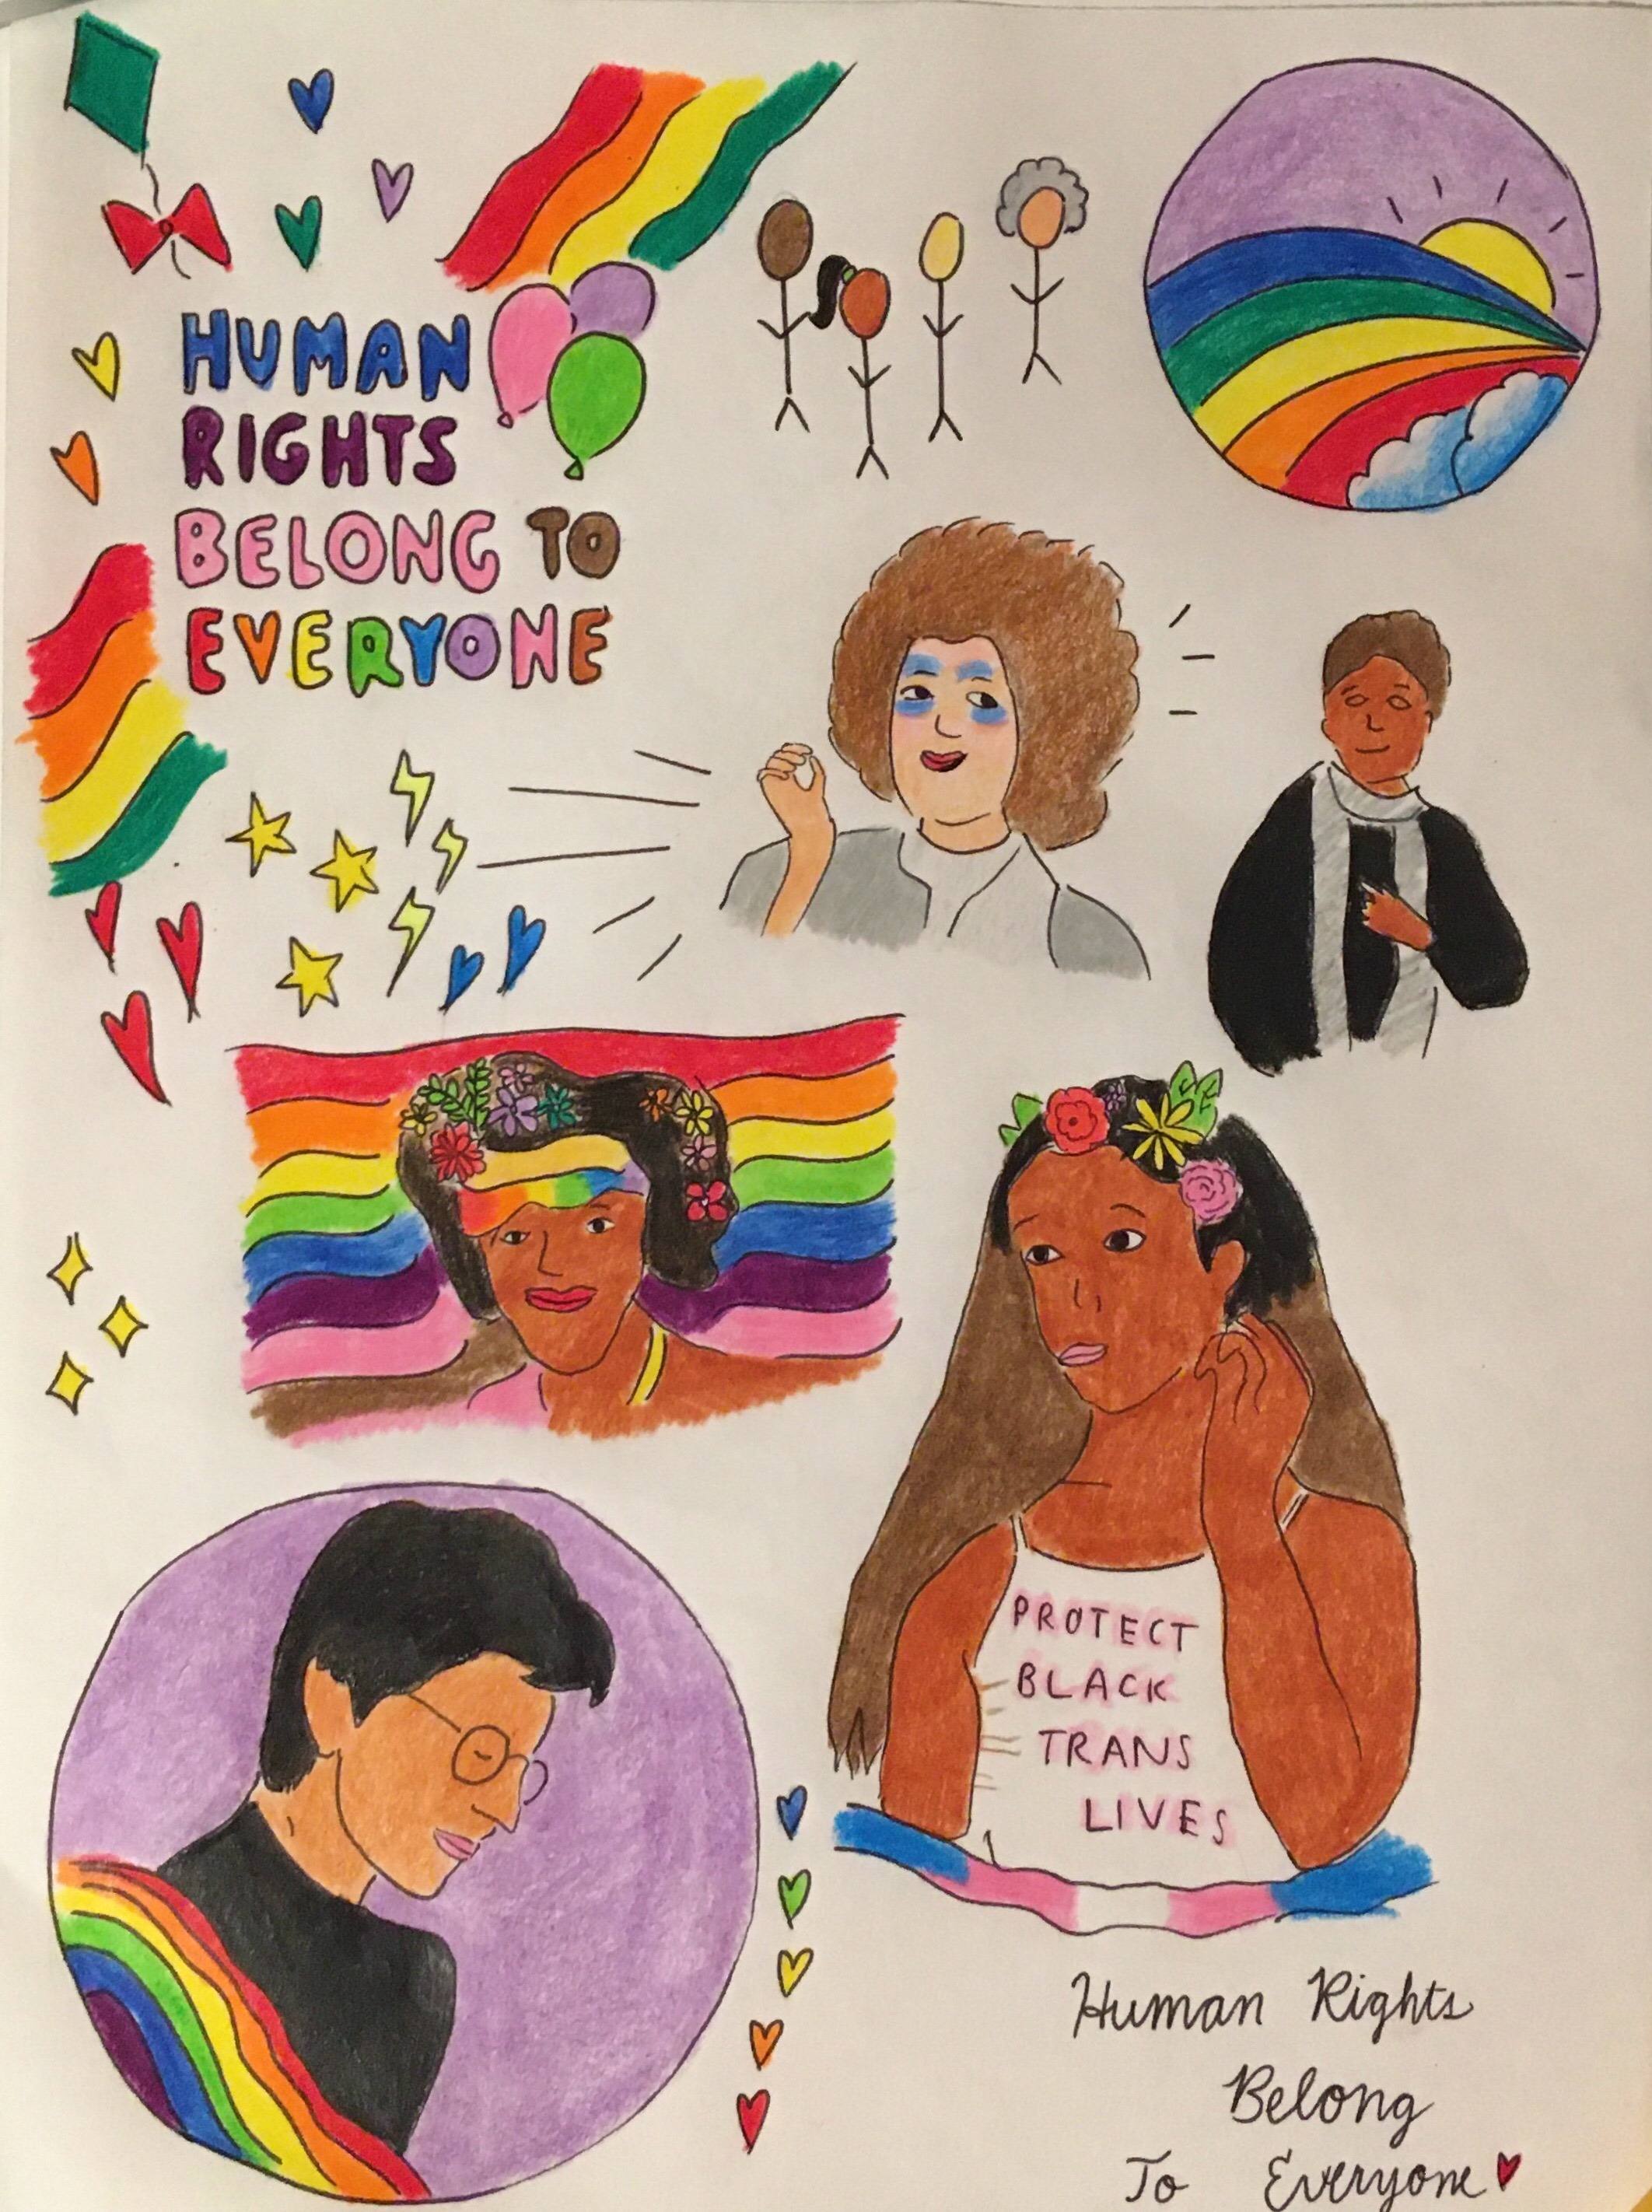 HUMAN
RIGHTS
BELONG TO
EVERYONE
PROTECT
BLACK
TRANS
LIVES
Human Rights
Belong
To Everyone